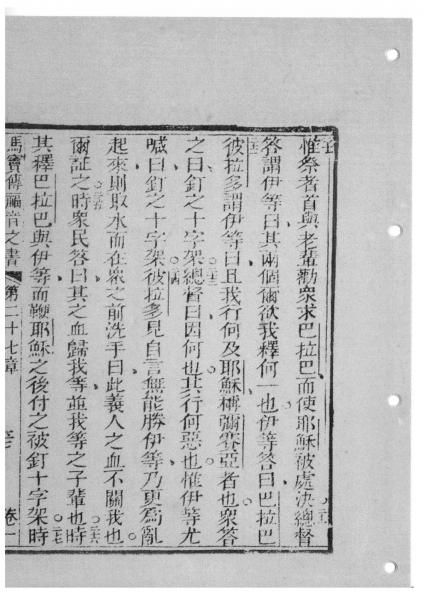 惟祭者首與老輩勸衆求巴拉巴而使耶穌被處決總督
答謂伊等曰其兩個爾欲我釋何一也伊等答曰巴拉巴
彼拉多謂伊等曰且我行何及耶穌稱彌賽亞者也衆答
之曰釘之十字架總督曰因何也其行何惡也惟伊等尤
喊曰釘之十字架彼拉多見自言無能勝伊等乃更為亂
起來則取水而在衆之前洗手曰此義人之血不關我也
爾証之時衆民答曰其之血歸我等並我等之子輩也時
其釋巴拉巴與伊等而鞭耶穌之後付之被釘十字架時
馬竇傳福音之書 第二十七章 卷一